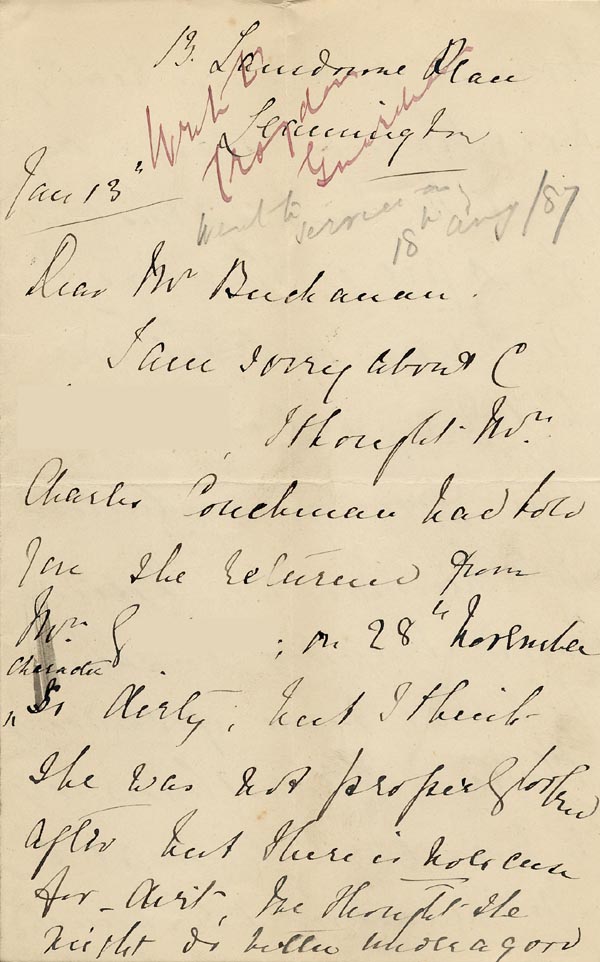 13. Lansdowne Place
Leamington
Write to
Croydon
Guardians
Jan 13"
Went to service on
18th Aug/87
Dear Mr Buchanan.
I am sorry about C
I thought Mrs
Charles Couchman had told
you she returned from
Mrs G ; on 28th November
Character
"is dirty", but I think
she was not properly looked
after but there is no excuse
for dirt, we thought she
might do better under a good